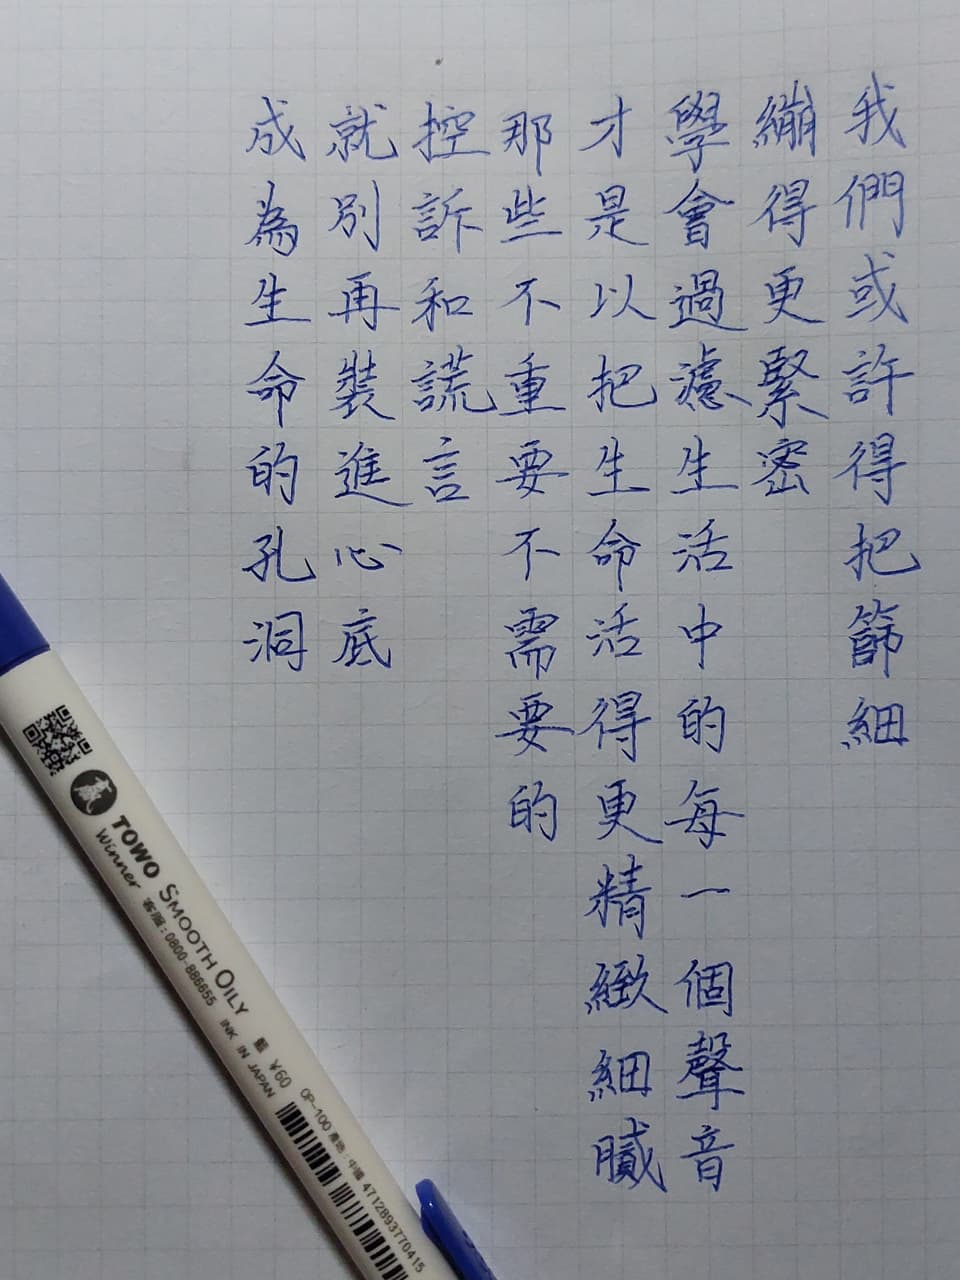 我們或許得把篩細
繃得更緊密
學會過濾生活中的每一個聲音
才是以把生命活得更精緻細膩
那些不重要不需要的
控訴和謊言
就別再裝進心底
成為生命的孔洞
TOWO SMOOTH OILY 藍 ¥60 OP-100 產地:中國 4712893770415
Winner 客服:0800-886655 INK IN JAPAN